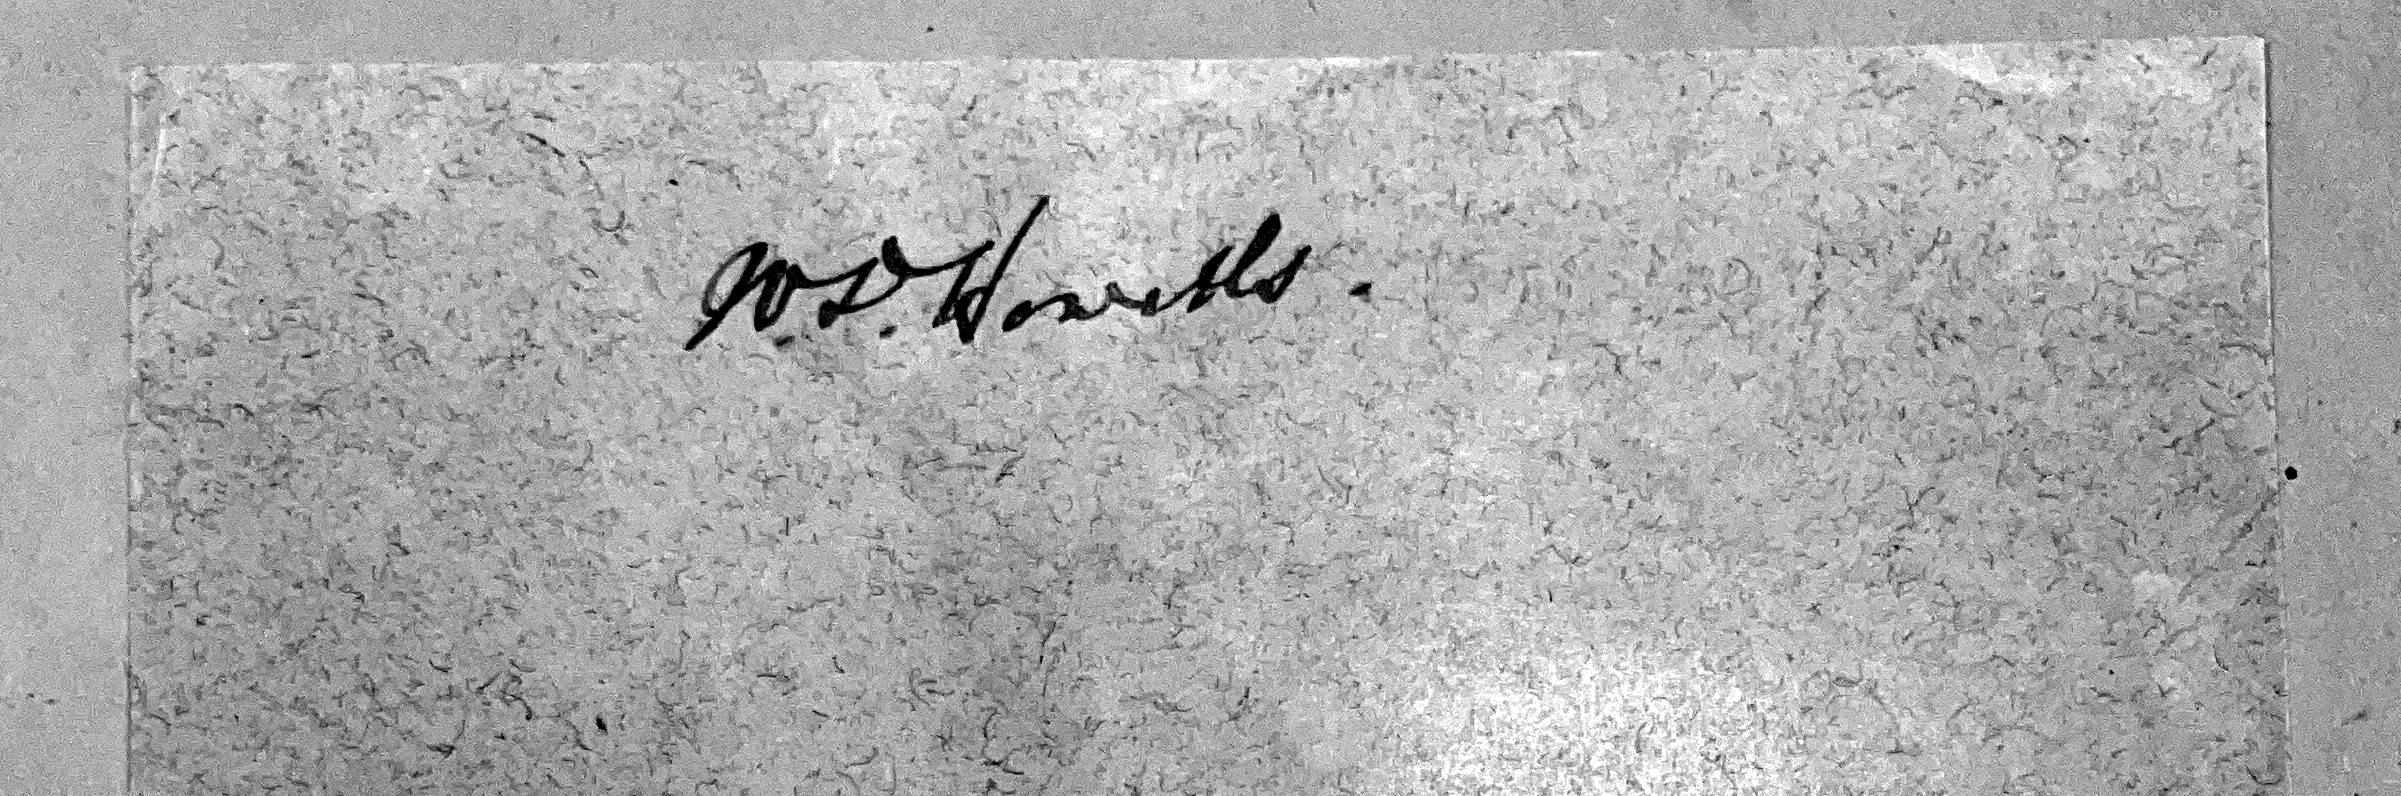 W. D. Howells.